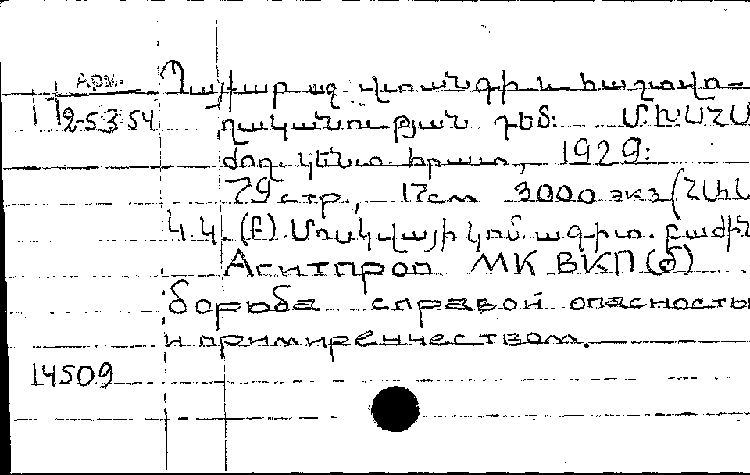 Арм.
Պայքար աջ վտանգի և հաշտվո-
12-5354 ղականության դեմ: Մ. ԽՍՀՄ
ժող. կենտ. հրատ., 1929:
79 стр., 17см 3000 экз (
Կ.Կ. (Բ) Մոսկվայի կոմ ագիտ. բաժին
Агитпроп МК ВКП(б)
борьба справой опасностью
и примиренчеством.
14509